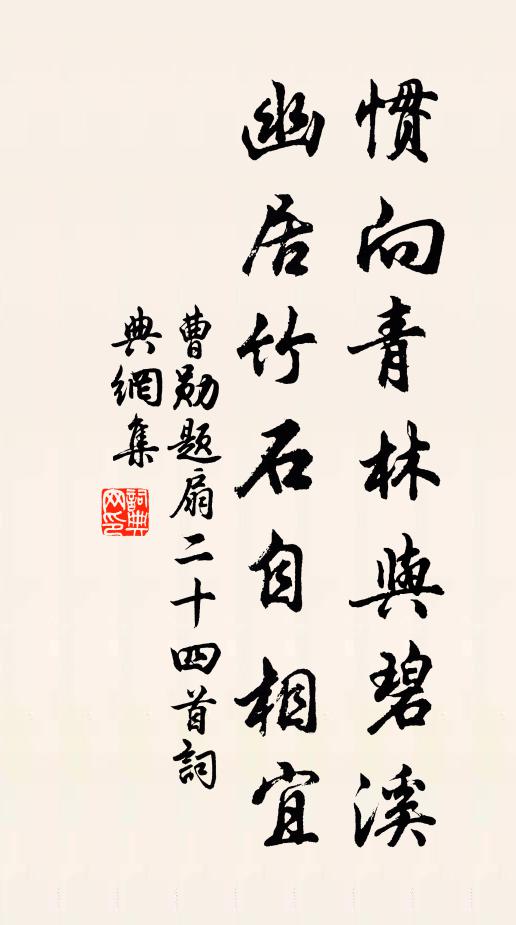 慣向青林與碧溪
幽居竹石自相宜
曹勛題扇二十四首詞
典網集
詞典網印